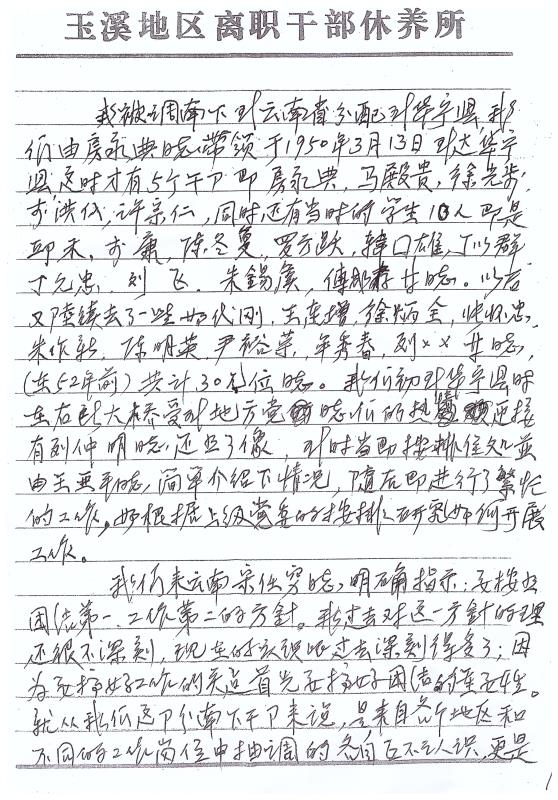 玉溪地区离职干部休养所
我被调南下到云南省分配到华宁县,我
们由房永典同志带领于1950年3月13日到达华宁
县,这时才有5个干部即房永典,马殿贵,徐光
李洪代,许宗仁,同时还有当时的学生10人即是
邱禾,李康,陈冬夏,罗方跃,韩口雄,丁以群
丁允忠,刘飞,朱锡侯,傅 甘同志。以后
又陆续去了一些如代刚,王连增,徐炳全,忠,
朱作新,陈明英,尹裕荣,年秀春,刘××等同志,
(在52年前)共计30位同志。我们初到华宁县时
在右所大桥受到地方党同志们的热烈迎接
有刘仲明同志,还照了像,到时当即安排住处并
由王亚平同志,简单介绍下情况,随后即进行了繁忙
的工作。如根据上级党委的安排,研究如何开展
工作。
我们来云南宋任穷同志,明确指示:要按照
团结第一,工作第二的方针。我过去对这一方针的理
还很不深刻,现在的认识比过去深刻得多了;因
为要搞好工作的关键首先要搞好团结的重要性。
就从我们这个南下干部来说,是来自各个地区和
不同的工作岗位中抽调的各自互不认识,更是
1